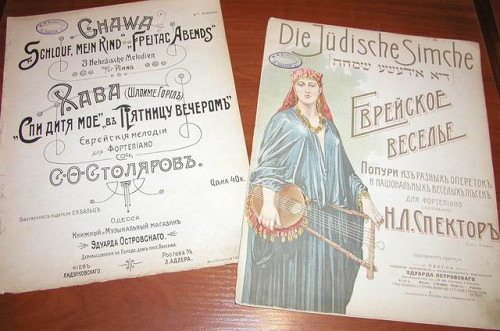 CHAWA
"SCHLOUF, MEIN KIND" "FREITAG ABENDS"
3 Hebräische Melodien
für Piano
ХАВА (Шлоиме Горгль)
"Спи дитя мое", въ Пятницу вечеромъ"
Еврейскія мелодіи
для
Фортепіано
Соч.
С.О. Столяровъ.
Цѣна 40 к.
Одесса
Книжный и Музыкальный магазинъ
Эдуарда Островскаго.
Кіевъ
Л. Идзиковскаго.
Ростовъ н/Д.
Л. Адлера.
Die Jüdische Simche
דיא אידישע שמחה
Еврейское
Веселье
Попури изъ разныхъ оперетокъ
и національныхъ веселыхъ пѣсенъ
для фортепіано
Н.Д. Спекторъ
Одесса
Эдуарда Островскаго